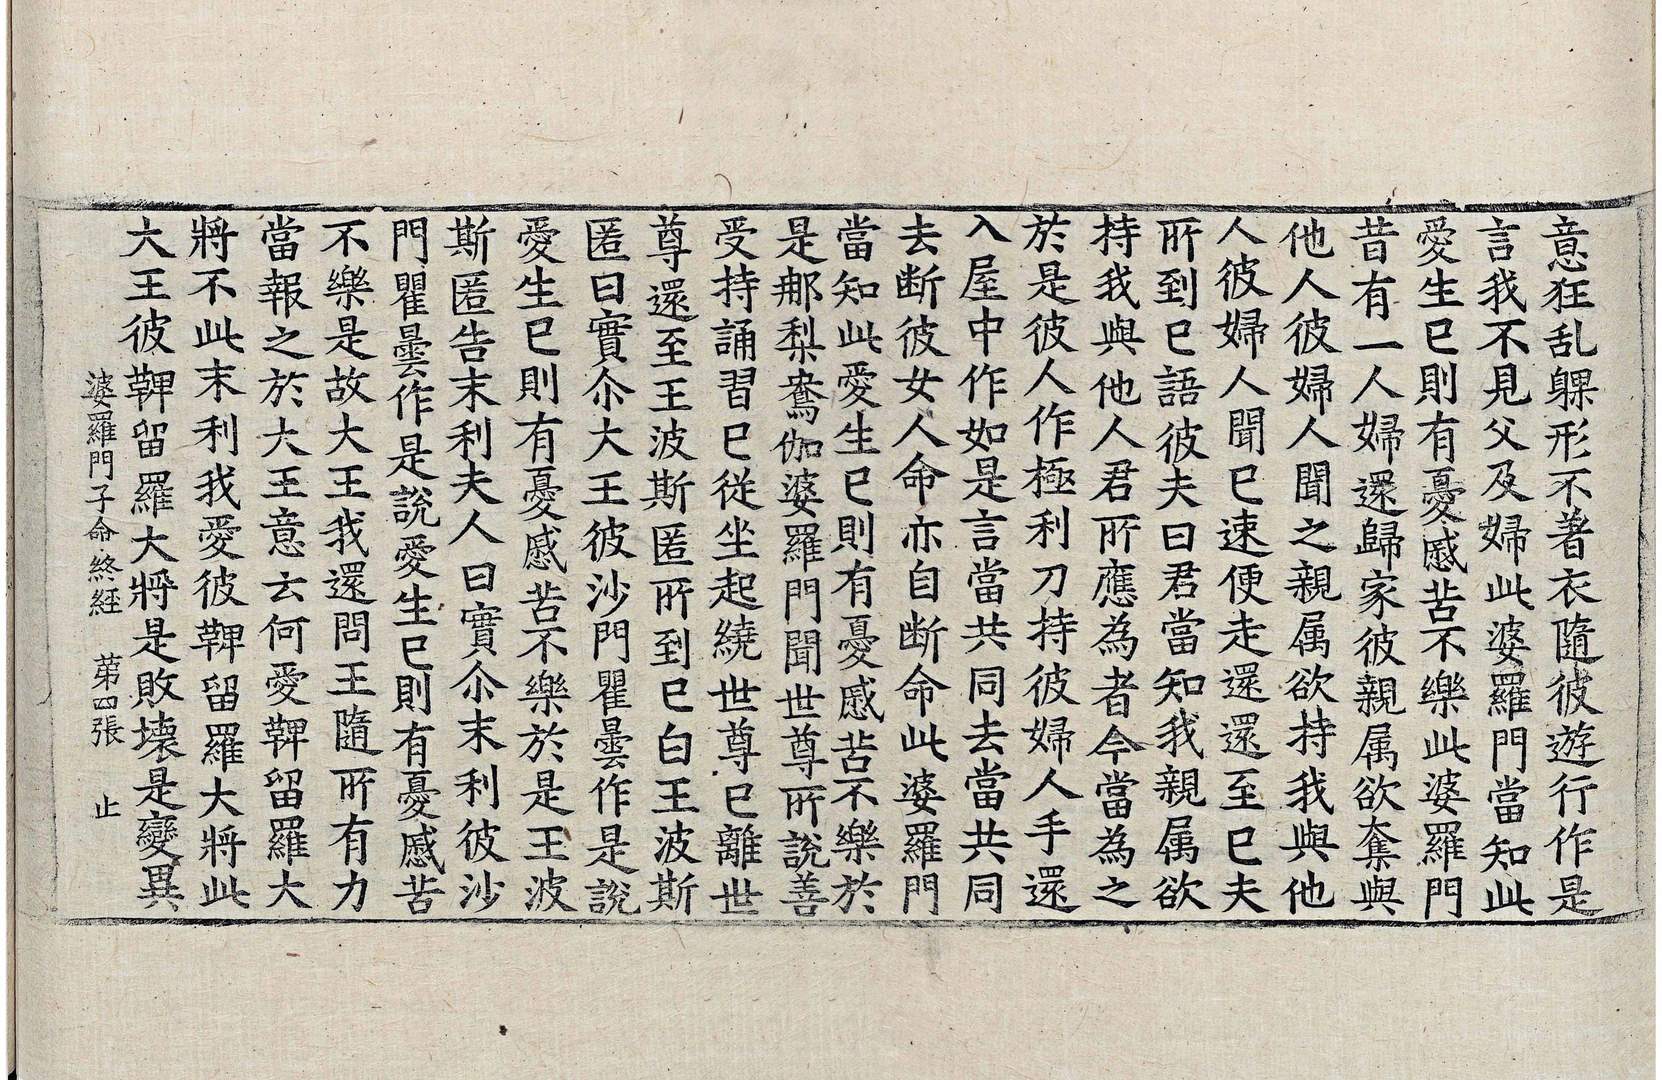 意狂乱躶形不著衣隨彼遊行作是
言我不見父及婦此婆羅門當知此
愛生已則有憂慼苦不樂此婆羅門
昔有一人婦還歸家彼親属欲奪與
他人彼婦人聞之親属欲持我與他
人彼婦人聞已速便走還還至已夫
所到已語彼夫曰君當知我親属欲
持我與他人君所應為者今當為之
於是彼人作極利刀持彼婦人手還
入屋中作如是言當共同去當共同
去断彼女人命亦自断命此婆羅門
當知此愛生已則有憂慼苦不樂於
是那梨鴦伽婆羅門聞世尊所說善
受持誦習已從坐起繞世尊已離世
尊還至王波斯匿所到已白王波斯
匿曰實尒大王彼沙門瞿曇作是說
愛生已則有憂慼苦不樂於是王波
斯匿告末利夫人曰實尒末利彼沙
門瞿曇作是說愛生已則有憂慼苦
不樂是故大王我還問王隨所有力
當報之於大王意云何愛鞞留羅大
將不此末利我愛彼鞞留羅大將此
大王彼鞞留羅大將是敗壞是變異
婆羅門子命終經 第四張 止